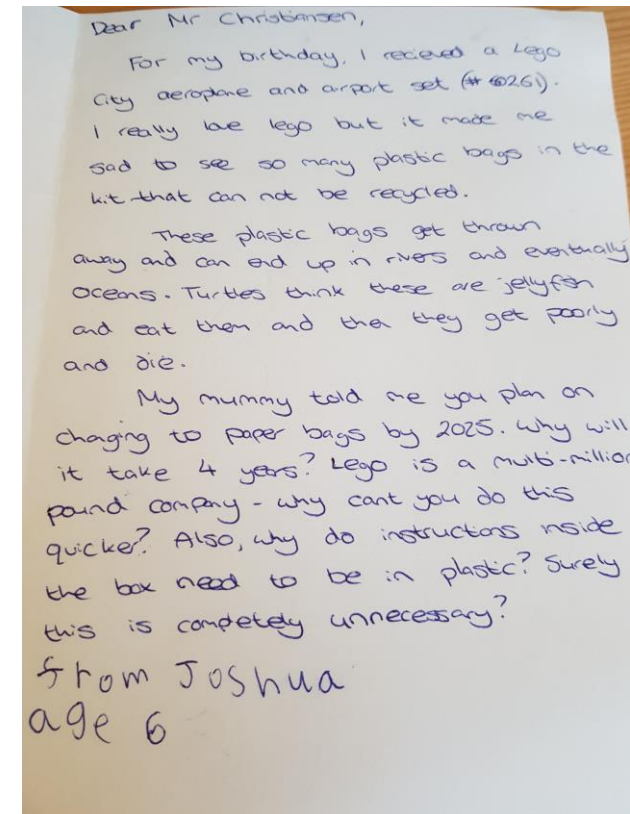 Dear Mr Christiansen,
For my birthday, I recieved a Lego
City aeroplane and airport set (#60261).
I really love lego but it made me
sad to see so many plastic bags in the
kit that can not be recycled.
These plastic bags get thrown
away and can end up in rivers and eventually
oceans. Turtles think these are jellyfish
and eat them and then they get poorly
and die.
My mummy told me you plan on
changing to paper bags by 2025. Why will
it take 4 years? Lego is a multi-million
pound company - why cant you do this
quicker? Also, why do instructions inside
the box need to be in plastic? Surely
this is completely unnecessary?
from Joshua
age 6